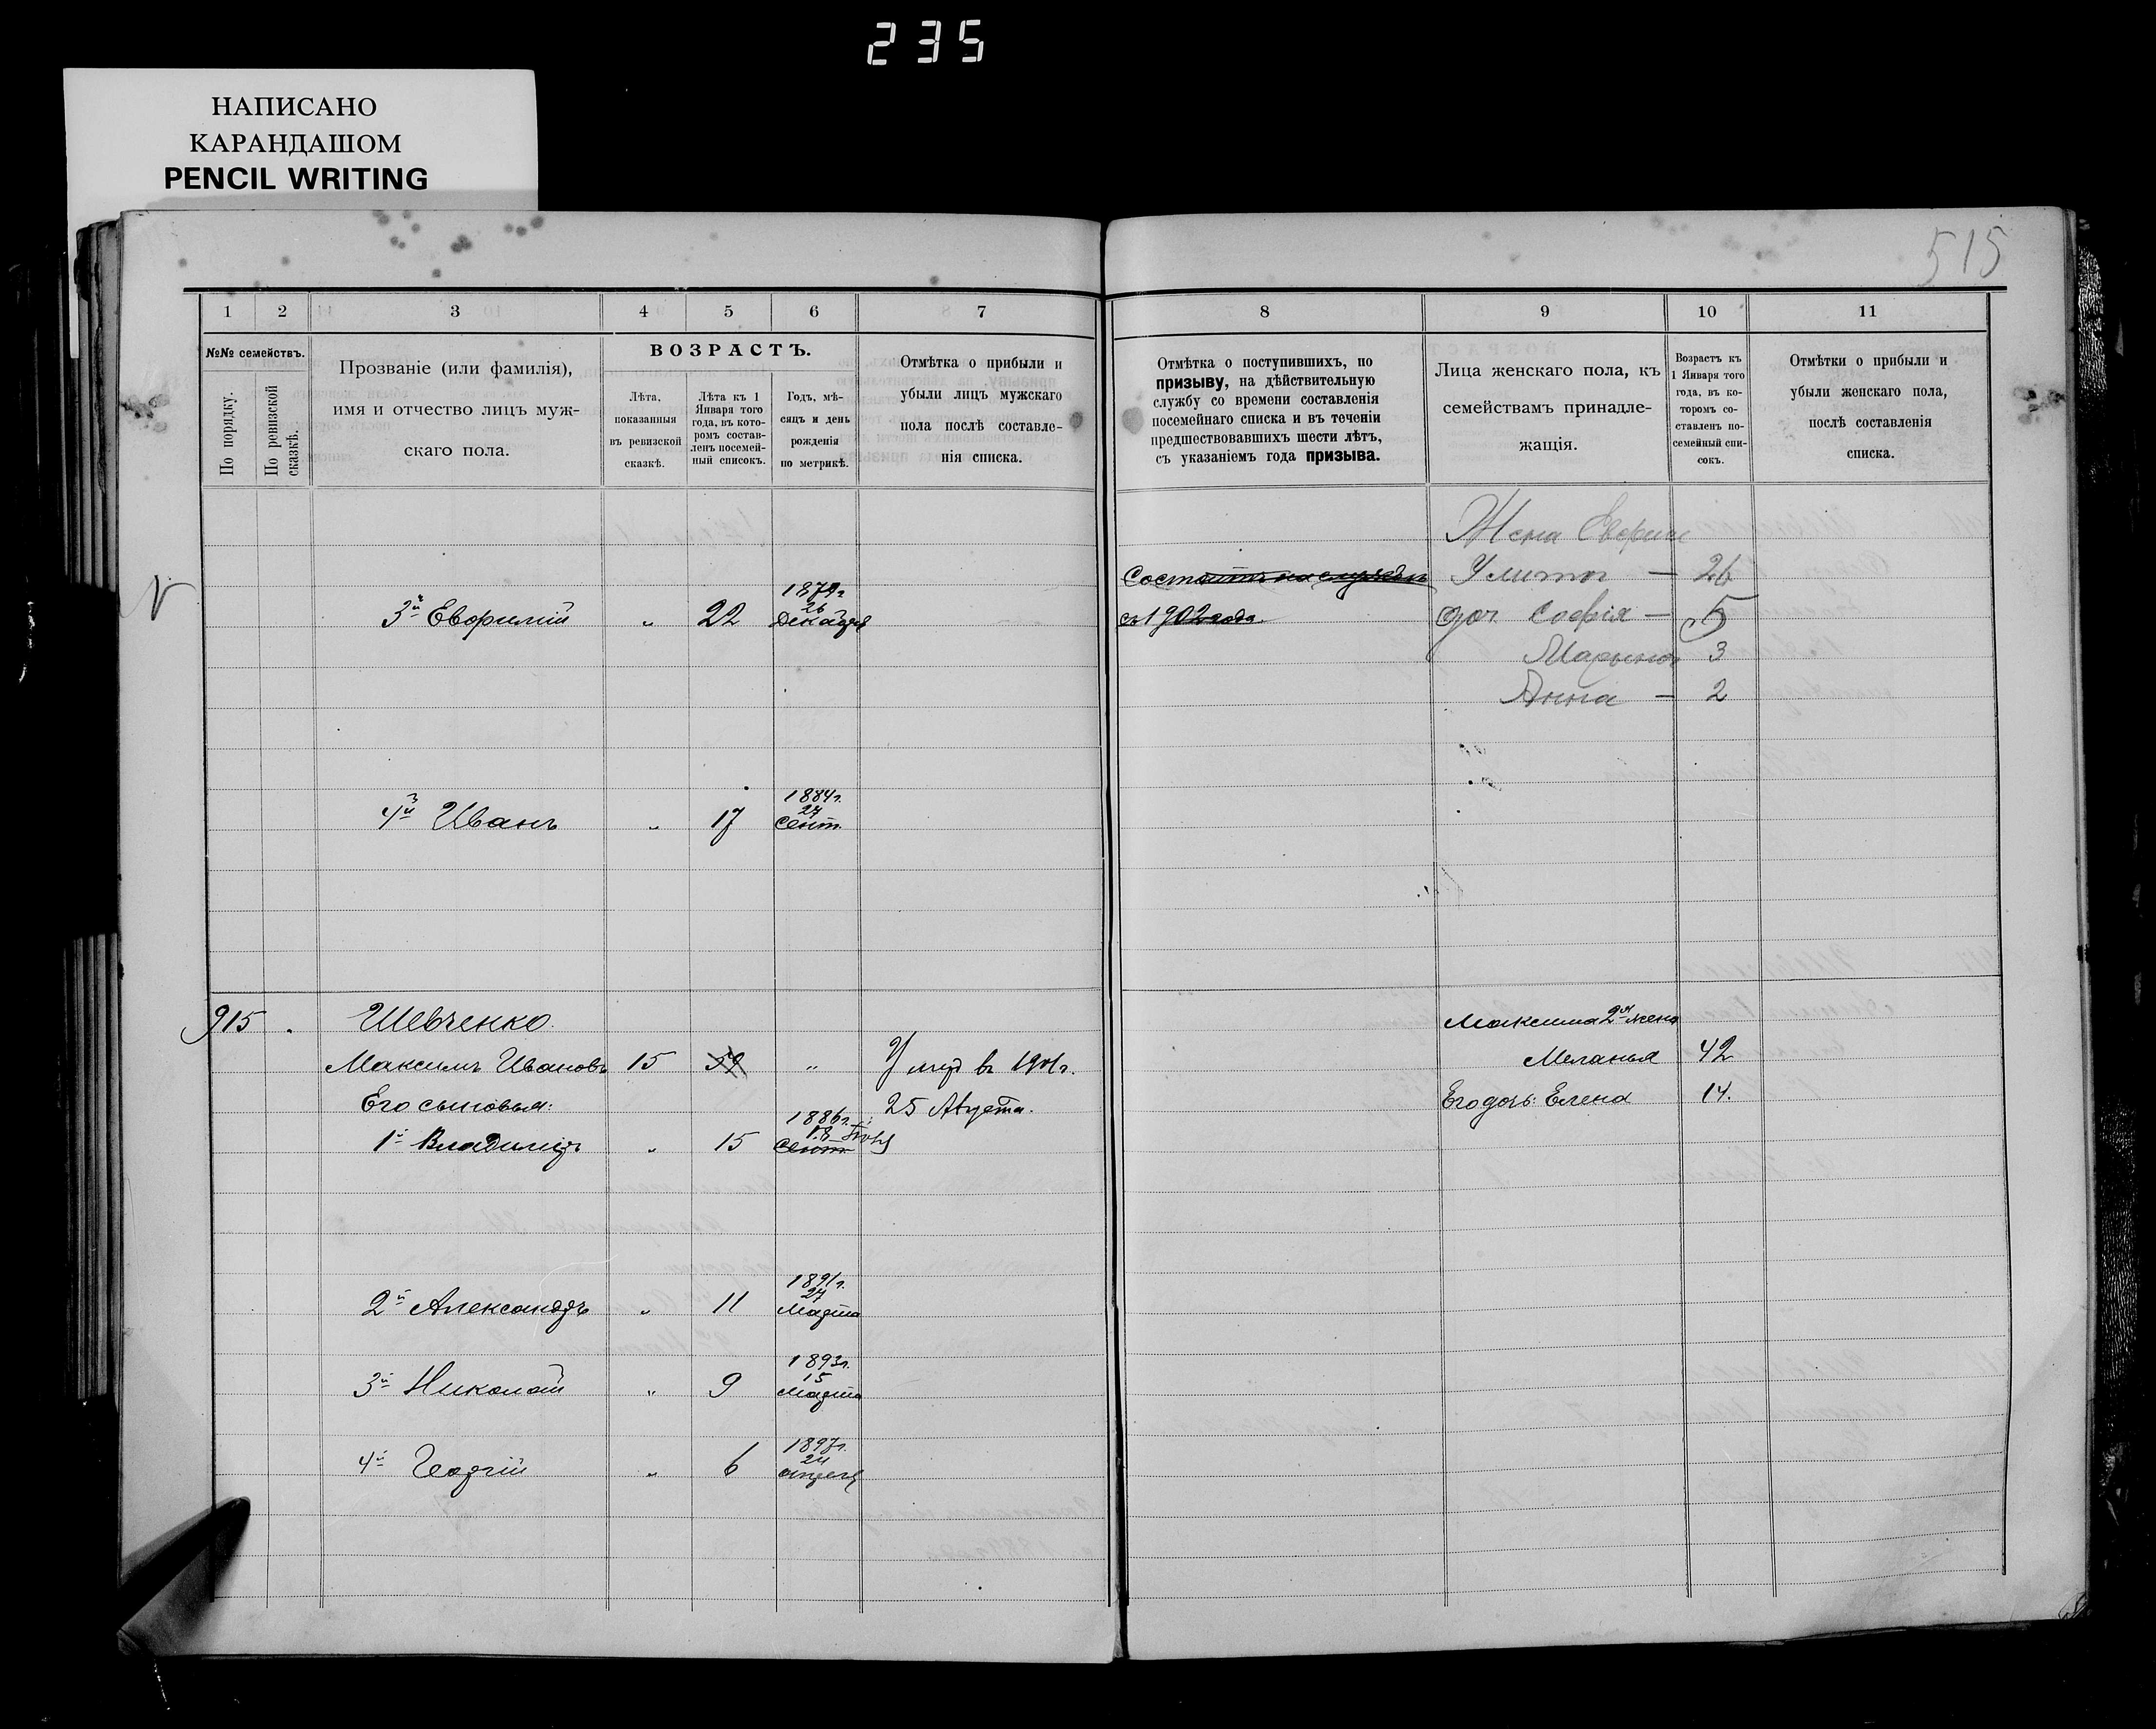 235
НАПИСАНО
КАРАНДАШОМ
PENCIL WRITING
515
1 2 3 4 5 6 7 8 9 10 11
№№ семействъ.
По порядку.
По ревизской сказкѣ.
Прозваніе (или фамилія),
имя и отчество лицъ муж-
скаго пола.
ВОЗРАСТЪ.
Лѣта,
показанныя
въ ревизской
сказкѣ.
Лѣта къ 1
Января того
года, въ кото-
ромъ состав-
ленъ посемей-
ный список.
Годъ, мѣ-
сяцъ и день
рожденія
по метрикѣ.
Отмѣтка о прибыли и
убыли лицъ мужскаго
пола послѣ составле-
нія списка.
Отмѣтка о поступившихъ, по
призыву, на дѣйствительную
службу со времени составленія
посемейнаго списка и въ теченіи
предшествовавшихъ шести лѣтъ,
съ указаніемъ года призыва.
Лица женскаго пола, къ
семействамъ принадле-
жащія.
Возрастъ къ
1 Января того
года, въ ко-
торомъ со-
ставленъ по-
семейный спи-
сокъ.
Отмѣтки о прибыли и
убыли женскаго пола,
послѣ составленія
списка.
Жена
Состоитъ на службѣ Улита — 26
1879г.
3й Евфимій " 22 26 Декабря съ 1902 года. доч София — 5
Марина 3
Анна — 2
1884г.
4й Иванъ " 17 24 Сент.
915 Шевченко. Максима 2я жена
Максимъ Ивановъ 15 59 " Умер в 1901г. Меланья 42
Его сыновья: 25 Августа. Его доч: Елена 14.
1886г.
1й Владиміръ " 15 18 Сент
1891г.
2й Александръ " 11 27 Марта
1893г.
3й Николай " 9 15 Марта
1897г.
4й Георгій " 6 24 апреля